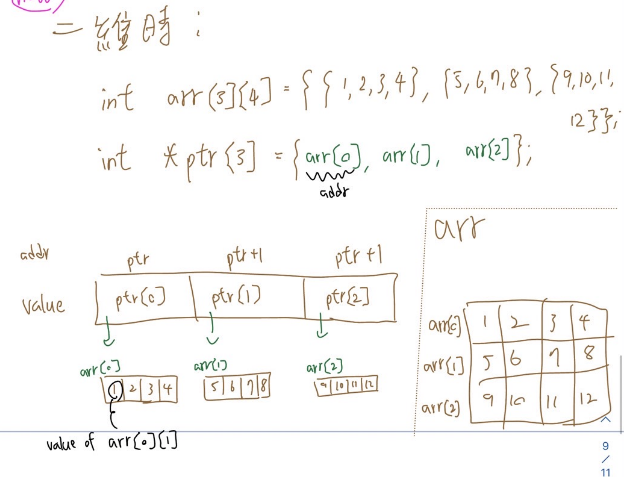 二維時：
int arr[3][4] = { { 1,2,3,4}, {5,6,7,8}, {9,10,11,
12}};
int *ptr[3] = {arr[0], arr[1], arr[2]};
addr
addr ptr ptr+1 ptr+1
value ptr[0] ptr[1] ptr[2]
arr[0] arr[1] arr[2]
1 2 3 4 5 6 7 8 9 10 11 12
value of arr[0][1]
arr
arr[0] 1 2 3 4
arr[1] 5 6 7 8
arr[2] 9 10 11 12
9
/
11